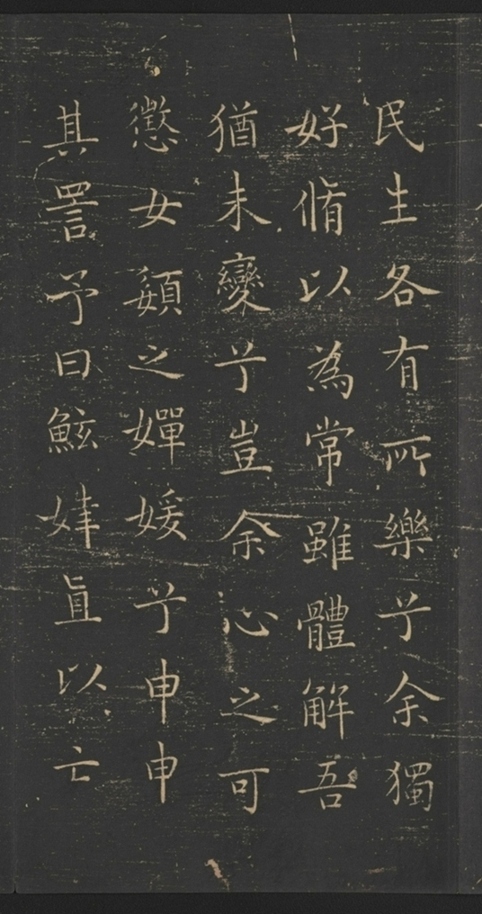 民生各有所樂兮余獨
好脩以為常雖體解吾
猶未變兮豈余心之可
懲女嬃之嬋媛兮申申
其詈予曰鮌婞直以亡